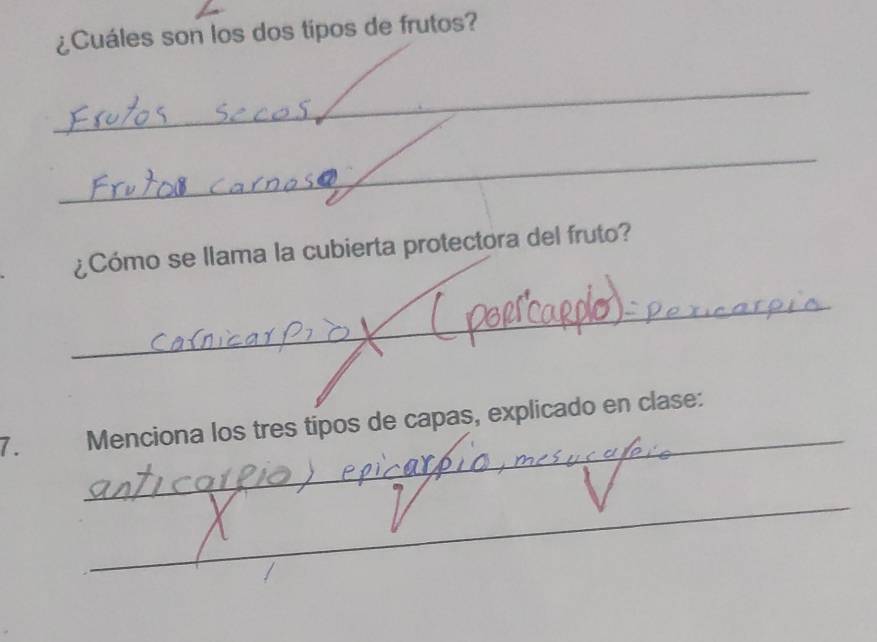 ¿Cuáles son los dos tipos de frutos?
Frutos secos
Frutos carnoso
¿Cómo se llama la cubierta protectora del fruto?
carnicarpio (pericarpio) = pericarpio
7. Menciona los tres tipos de capas, explicado en clase:
anticarpio, epicarpio, mesucarpio